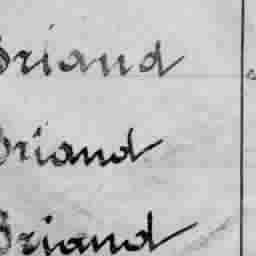 Briand
Briand
Briand